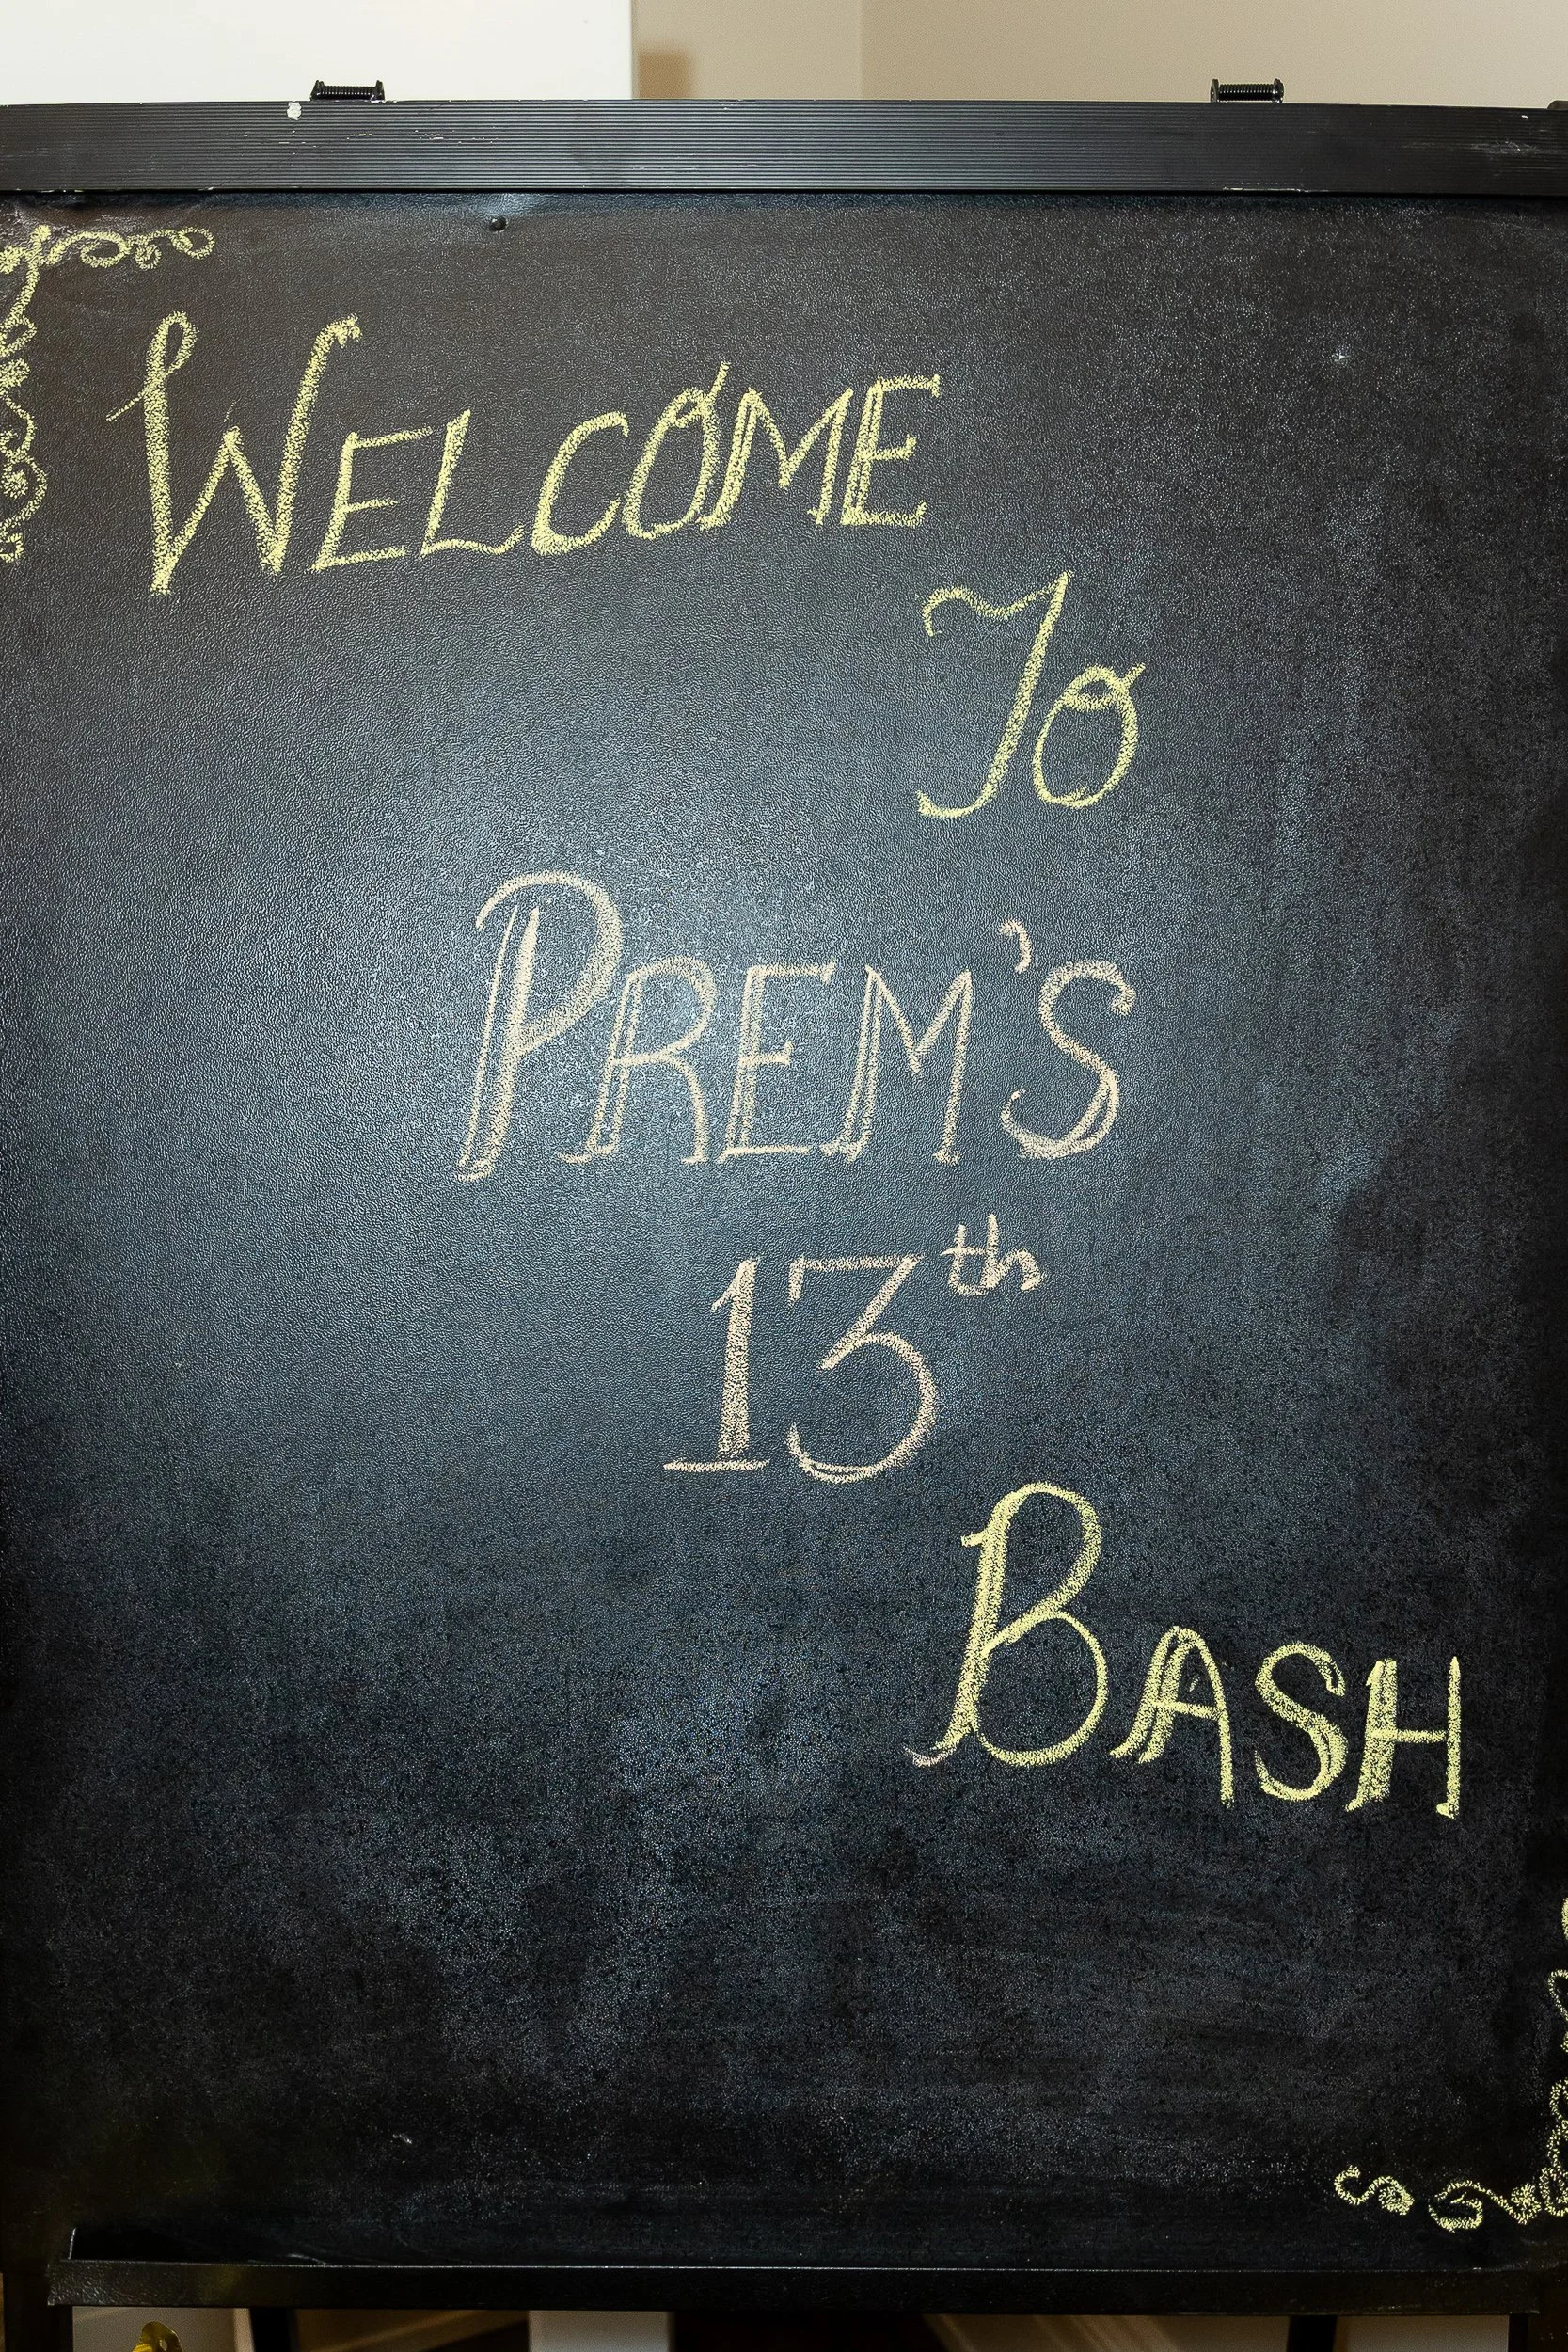 WELCOME
TO
PREM'S
13th
BASH